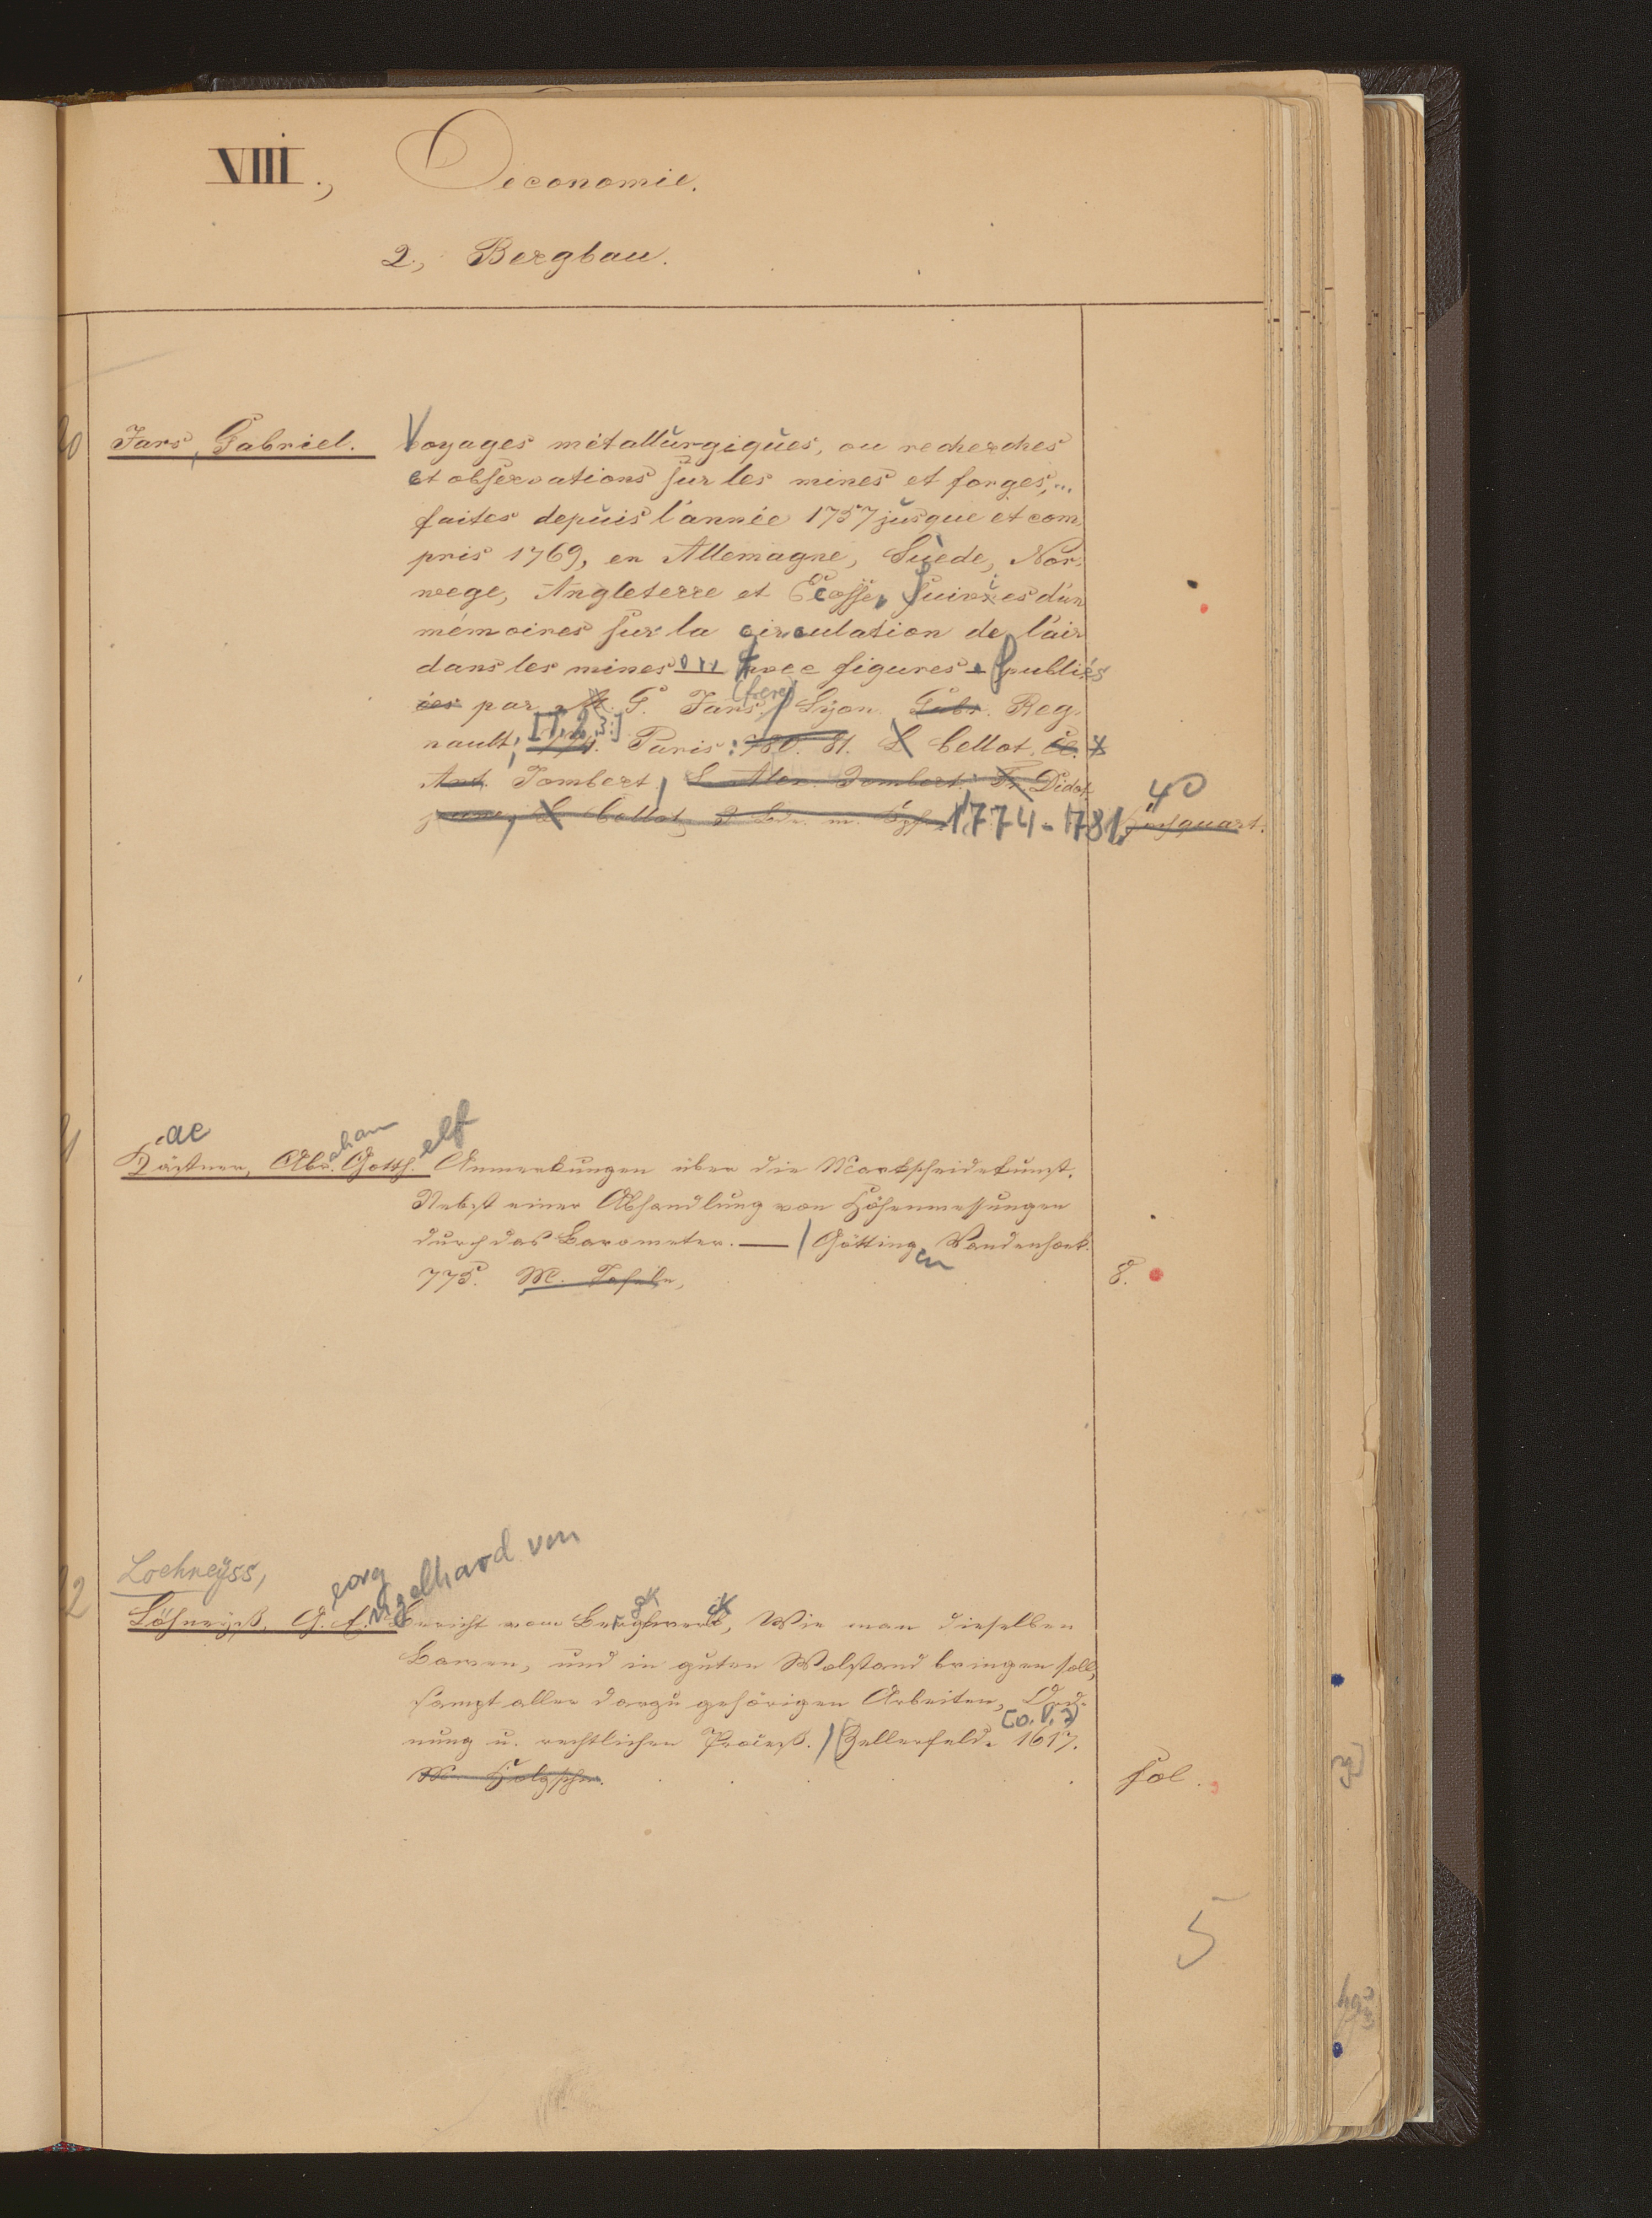 VIII., Oeconomie.
2., Bergbau.
20 Jars, Gabriel. Voyages métallurgiques, ou recherches
et observations sur les mines et forges,...
faites depuis l'année 1757 jusque et com
pris 1769, en Allemagne, Suède, Nor-
wege, Angleterre et Ecosse, Suivies d'un
mémoires sur la circulation de l'air
dans les mines ... avec figures. publiés
par M. G. Jars. (frere) / Lyon Gabr. Reg-
nault; 774. [1,2,3:] Paris: 780. 81. L Cellot, Cl.
Ant. Jombert, L. Alex. Jombert. Fr. Didot
jeune, L Cellot, 1774-1781. 4°
Kästner, Abr. Gotth. Anmerkungen über die Markscheidekunst.
ae aham elf
Nebst einer Abhandlung von Höhenmessungen
durch das Barometer. — / Götting en Vandenhoek.
775. M. Tafeln, 8.
Loehneyss,
eorg ngelhard von
22 Löhneyß, G. E. Bericht vom Bergkwerck, Wie man dieselben
Bawen, und in guten Wolstand bringen soll,
sampt allen darzu gehörigen Arbeiten, Ord-
nung u. rechtlichen Proceß. / Zellerfeld. [o. V.] 1617.
M. Holzschn. fol.
5